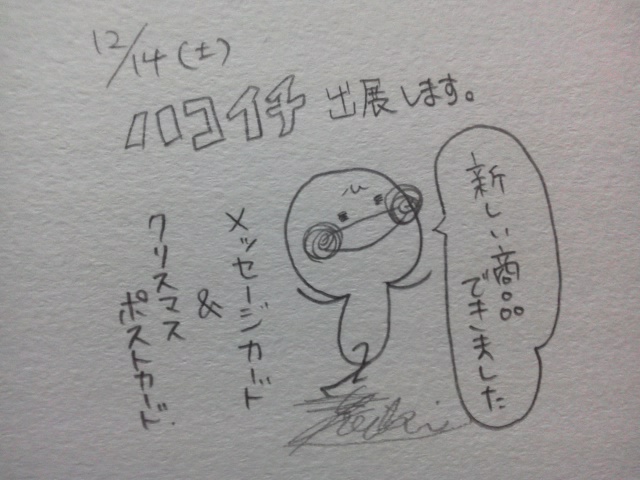 12/14(土)
ハコイチ 出展します。
新しい商品
できました
メッセージカード
&
クリスマス
ポストカード.